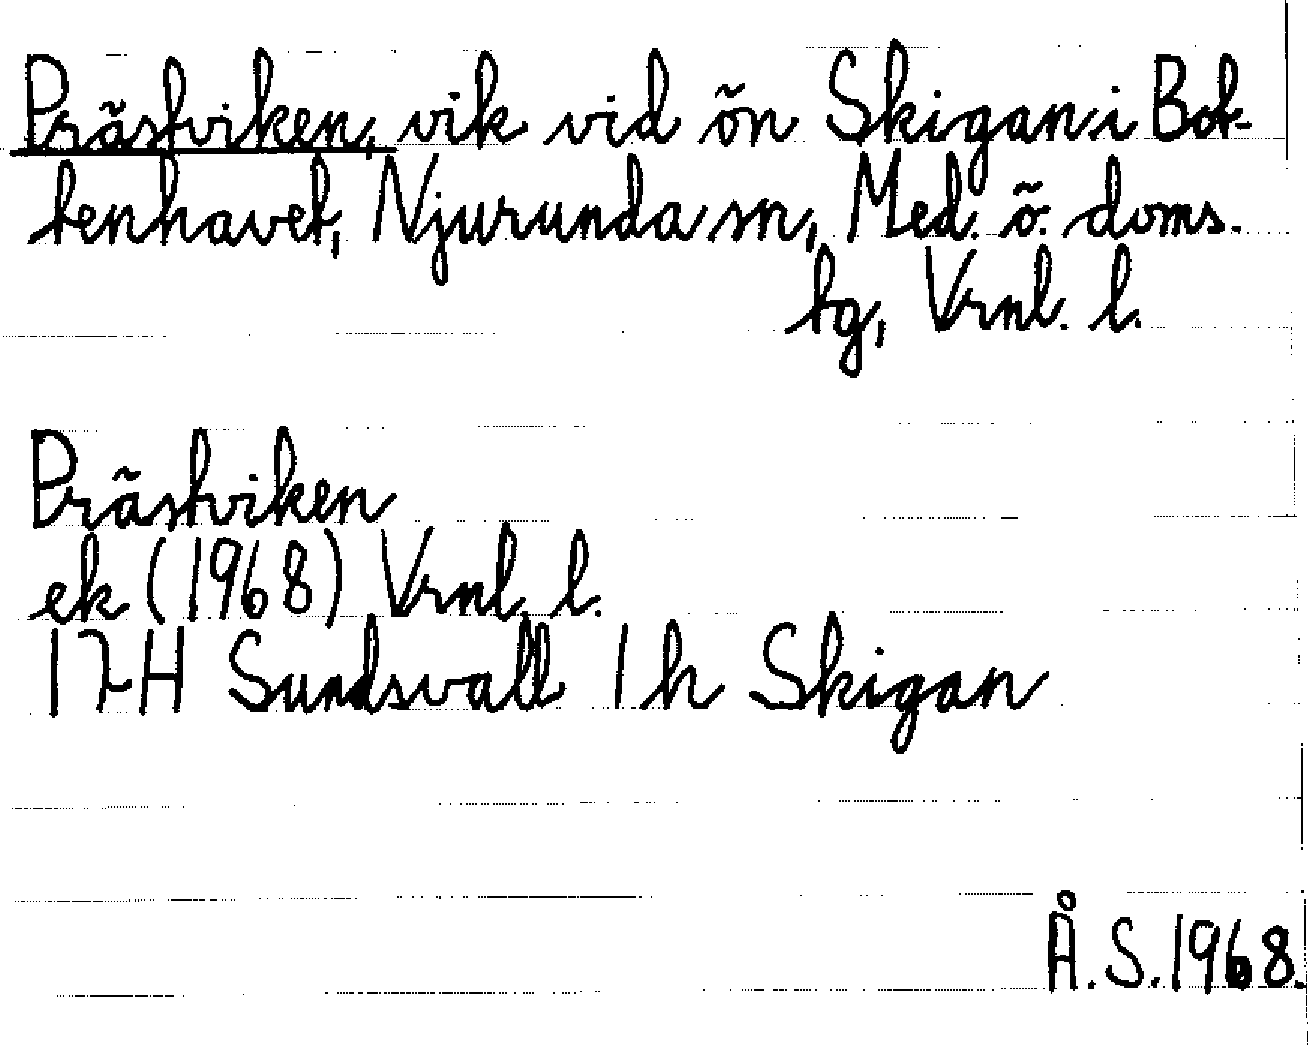 Prästviken, vik vid ön Skigan i Bot-
tenhavet, Njurunda sn, Med. ö. doms.
tg, Vrnl. l.
Prästviken
ek (1968) Vrnl. l.
17H Sundsvall 1h Skigan
Å.S. 1968.